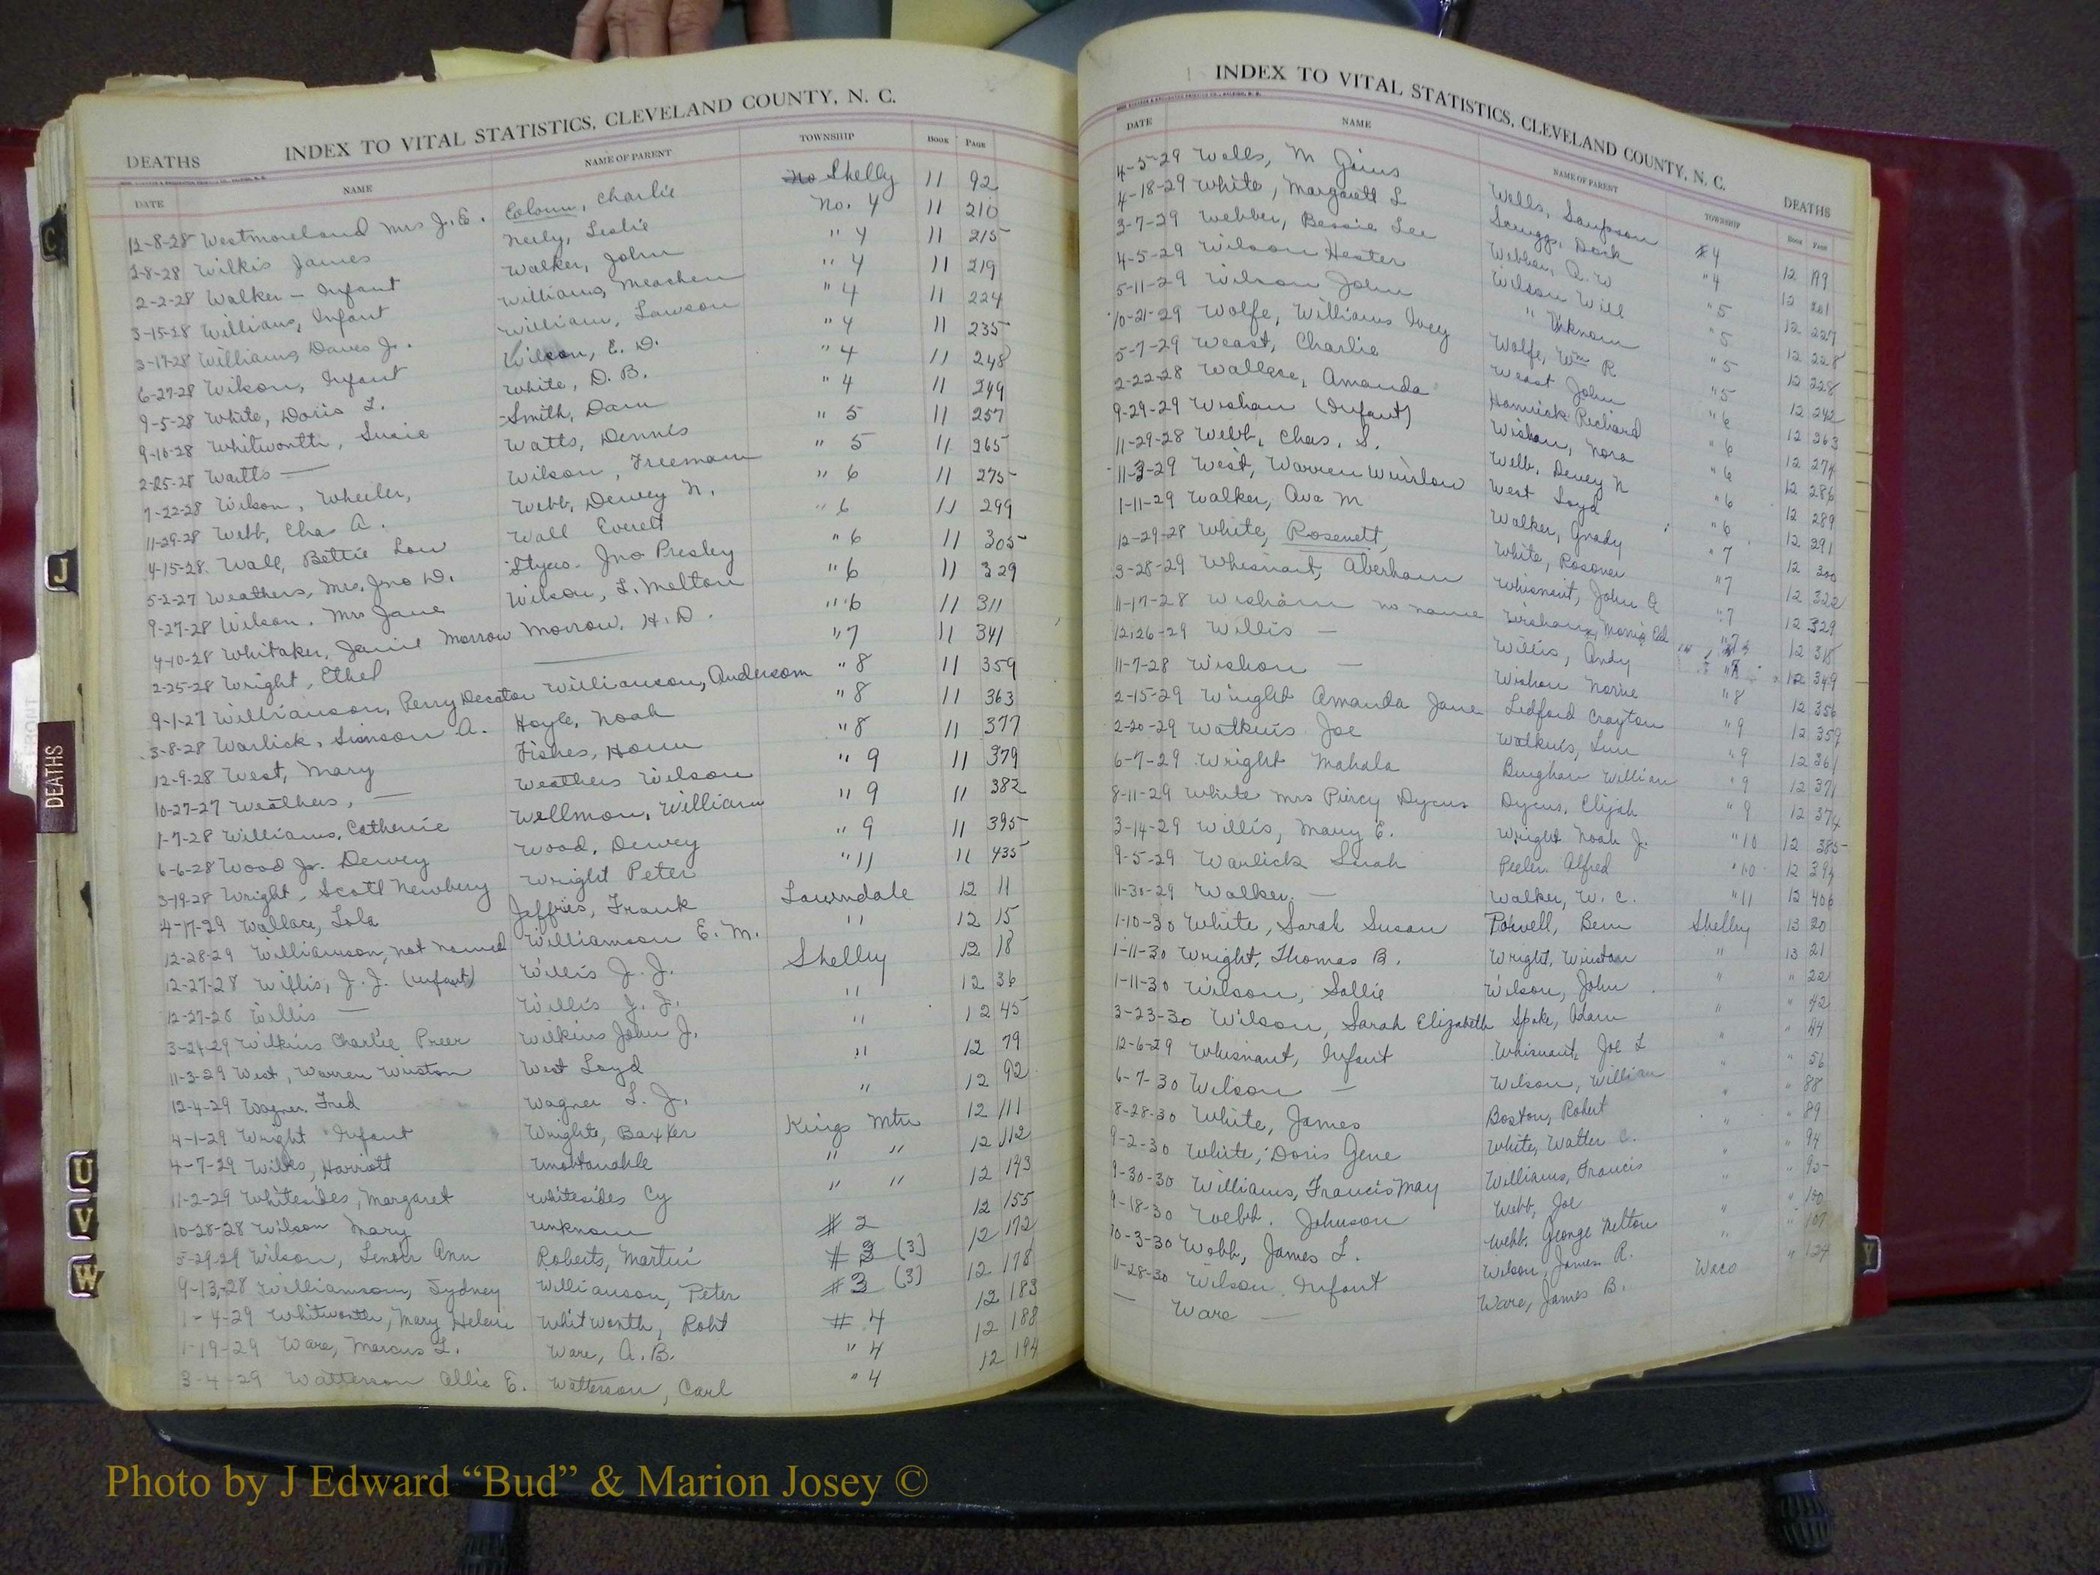 INDEX TO VITAL STATISTICS, CLEVELAND COUNTY, N. C.
DEATHS
DATE NAME NAME OF PARENT TOWNSHIP BOOK PAGE
12-8-28 Westmoreland Mrs J. E. Charlie no Shelby 11 92
2-8-28 Wilkis James Neely, Leslie No. 4 11 210
2-2-28 Walker - Infant Walker, John " 4 11 215
3-15-28 Williams, Infant Williams, Meachem " 4 11 219
3-17-28 Williams Daves Jr. William, Lawson " 4 11 224
6-27-28 Wilson, Infant Wilson, E. D. " 4 11 235
9-5-28 White, Doris L. White, D. B. " 4 11 248
9-10-28 Whitworth, Susie Smith, Dam " 4 11 249
2-25-28 Watts — Watts, Dennis " 5 11 257
7-22-28 Wilson, Wheeler, Wilson, Freeman " 5 11 265
11-29-28 Webb, Chas A. Webb, Dewey N. " 6 11 275
4-15-28 Wall, Bettie Lou Wall Everett " 6 11 299
5-2-27 Weathers, Mrs. Jno D. Styers Jno Presley " 6 11 305
9-27-28 Wilson, Mrs Jane Wilson, L. Melton " 6 11 329
4-10-28 Whitaker, Janie Morrow Morrow, H. D. " 6 11 311
2-25-28 Wright, Ethel — " 7 11 341
9-1-27 Williamson, Perry Decator Williamson, Anderson " 8 11 359
3-8-28 Warlick, Simson A. Hoyle, Noah " 8 11 363
12-9-28 West, Mary Fisher, " 8 11 377
10-27-27 Weathers, — Weathers Wilson " 9 11 379
1-7-28 Williams, Catherine Wellmon, William " 9 11 382
6-6-28 Wood Jr. Dewey Wood, Dewey " 9 11 395
3-19-28 Wright, Scott Newberry Wright Peter " 11 11 435
4-17-29 Wallace, Lola Jeffries, Frank Lawndale 12 11
12-28-29 Williamson, not named Williamson E. M. " 12 15
12-27-28 Willis, J. J. (Infant) Willis J. J. Shelby 12 18
12-27-28 Willis — Willis J. J. " 12 36
3-24-29 Wilkins Charlie Preer Wilkins John J. " 12 45
11-3-29 West, Warren Winston West Loyd " 12 79
12-4-29 Wagner, Fred Wagner L. J. " 12 92
4-1-29 Wright Infant Wright, Baxter Kings Mtn 12 111
4-7-29 Wilks, Harriott unobtainable " " 12 112
11-2-29 Whitesides, Margaret Whitesides Cy " " 12 143
10-28-28 Wilson Mary unknown # 2 12 155
5-29-29 Wilson, Lenoir Ann Roberts, Martin # 3 (3) 12 172
9-13-28 Williamson, Sydney Williamson, Peter # 3 (3) 12 178
1-4-29 Whitworth, Mary Helen Whitworth, Robt # 4 12 183
1-19-29 Ware, Marcus L. Ware, A. B. " 4 12 188
3-4-29 Watterson Allie E. Watterson, Carl " 4 12 194
INDEX TO VITAL STATISTICS, CLEVELAND COUNTY, N. C.
DEATHS
DATE NAME NAME OF PARENT TOWNSHIP BOOK PAGE
4-5-29 Wells, M Gaius Wells, Sampson # 4 12 199
4-18-29 White, Margarett L Scruggs, Dock " 4 12 201
3-7-29 Webber, Bessie Lee Webber, A. W " 5 12 227
4-5-29 Wilson Hester Wilson Will " 5 12 228
5-11-29 Wilson John " Unknown " 5 12 228
10-21-29 Wolfe, Williams Ivey Wolfe, Wm R " 5 12 242
5-7-29 Weast, Charlie Weast John " 6 12 263
2-22-28 Wallace, Amanda Hamrick Richard " 6 12 274
9-29-29 Wishon (Infant) Wishon, Nora " 6 12 286
11-29-28 Webb, Chas. S. Webb, Dewey N " 6 12 289
11-3-29 West, Warren Winslow West Loyd " 6 12 291
1-11-29 Walker, Ava M Walker, Grady " 7 12 300
12-29-28 White, Rosenett, White, Rosover " 7 12 322
3-28-29 Whisnant, Aberham Whisnant, John A " 7 12 329
11-17-28 Wisham no name 12 315
12-26-29 Willis — Willis, Andy 12 349
11-7-28 Wishon — Wishon Norine " 8 12 356
2-15-29 Wright Amanda Jane Ledford Crayton " 9 12 359
2-20-29 Watkins Joe Watkins, " 9 12 361
6-7-29 Wright Mahala Bingham William " 9 12 371
8-11-29 White Mrs Piercy Dycus Dycus, Elijah " 9 12 374
3-14-29 Willis, Mary E. Wright Noah J. " 10 12 385
9-5-29 Warlick Sarah Peeler Alfred " 10 12 394
11-30-29 Walker, — Walker, W. C. " 11 12 406
1-10-30 White, Sarah Susan Powell, Ben Shelby 13 20
1-11-30 Wright, Thomas B. Wright, Winston " 13 21
1-11-30 Wilson, Sallie Wilson, John " " 22
3-23-30 Wilson, Sarah Elizabeth Spake, Adam " " 42
12-6-29 Whisnant, Infant Whisnant, Joe L " " 44
6-7-30 Wilson — Wilson, William " " 56
8-28-30 White, James Boston, Robert " " 88
9-2-30 White, Doris Gene White, Walter C. " " 89
9-30-30 Williams, Francis May Williams, Francis " " 94
9-18-30 Webb, Johnson Webb, Joe " " 95
10-3-30 Webb, James L. Webb, George Melton " " 100
11-28-30 Wilson Infant Wilson, James R. " " 107
— Ware — Ware, James B. Waco " 124
C
J
DEATHS
U
V
W
Y
Photo by J Edward “Bud” & Marion Josey ©